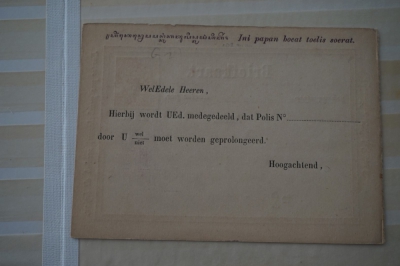 Ini papan boeat toelis soerat.
WelEdele Heeren,
Hierbij wordt UEd. medegedeeld, dat Polis N°.
door U wel/niet moet worden geprolongeerd.
Hoogachtend,